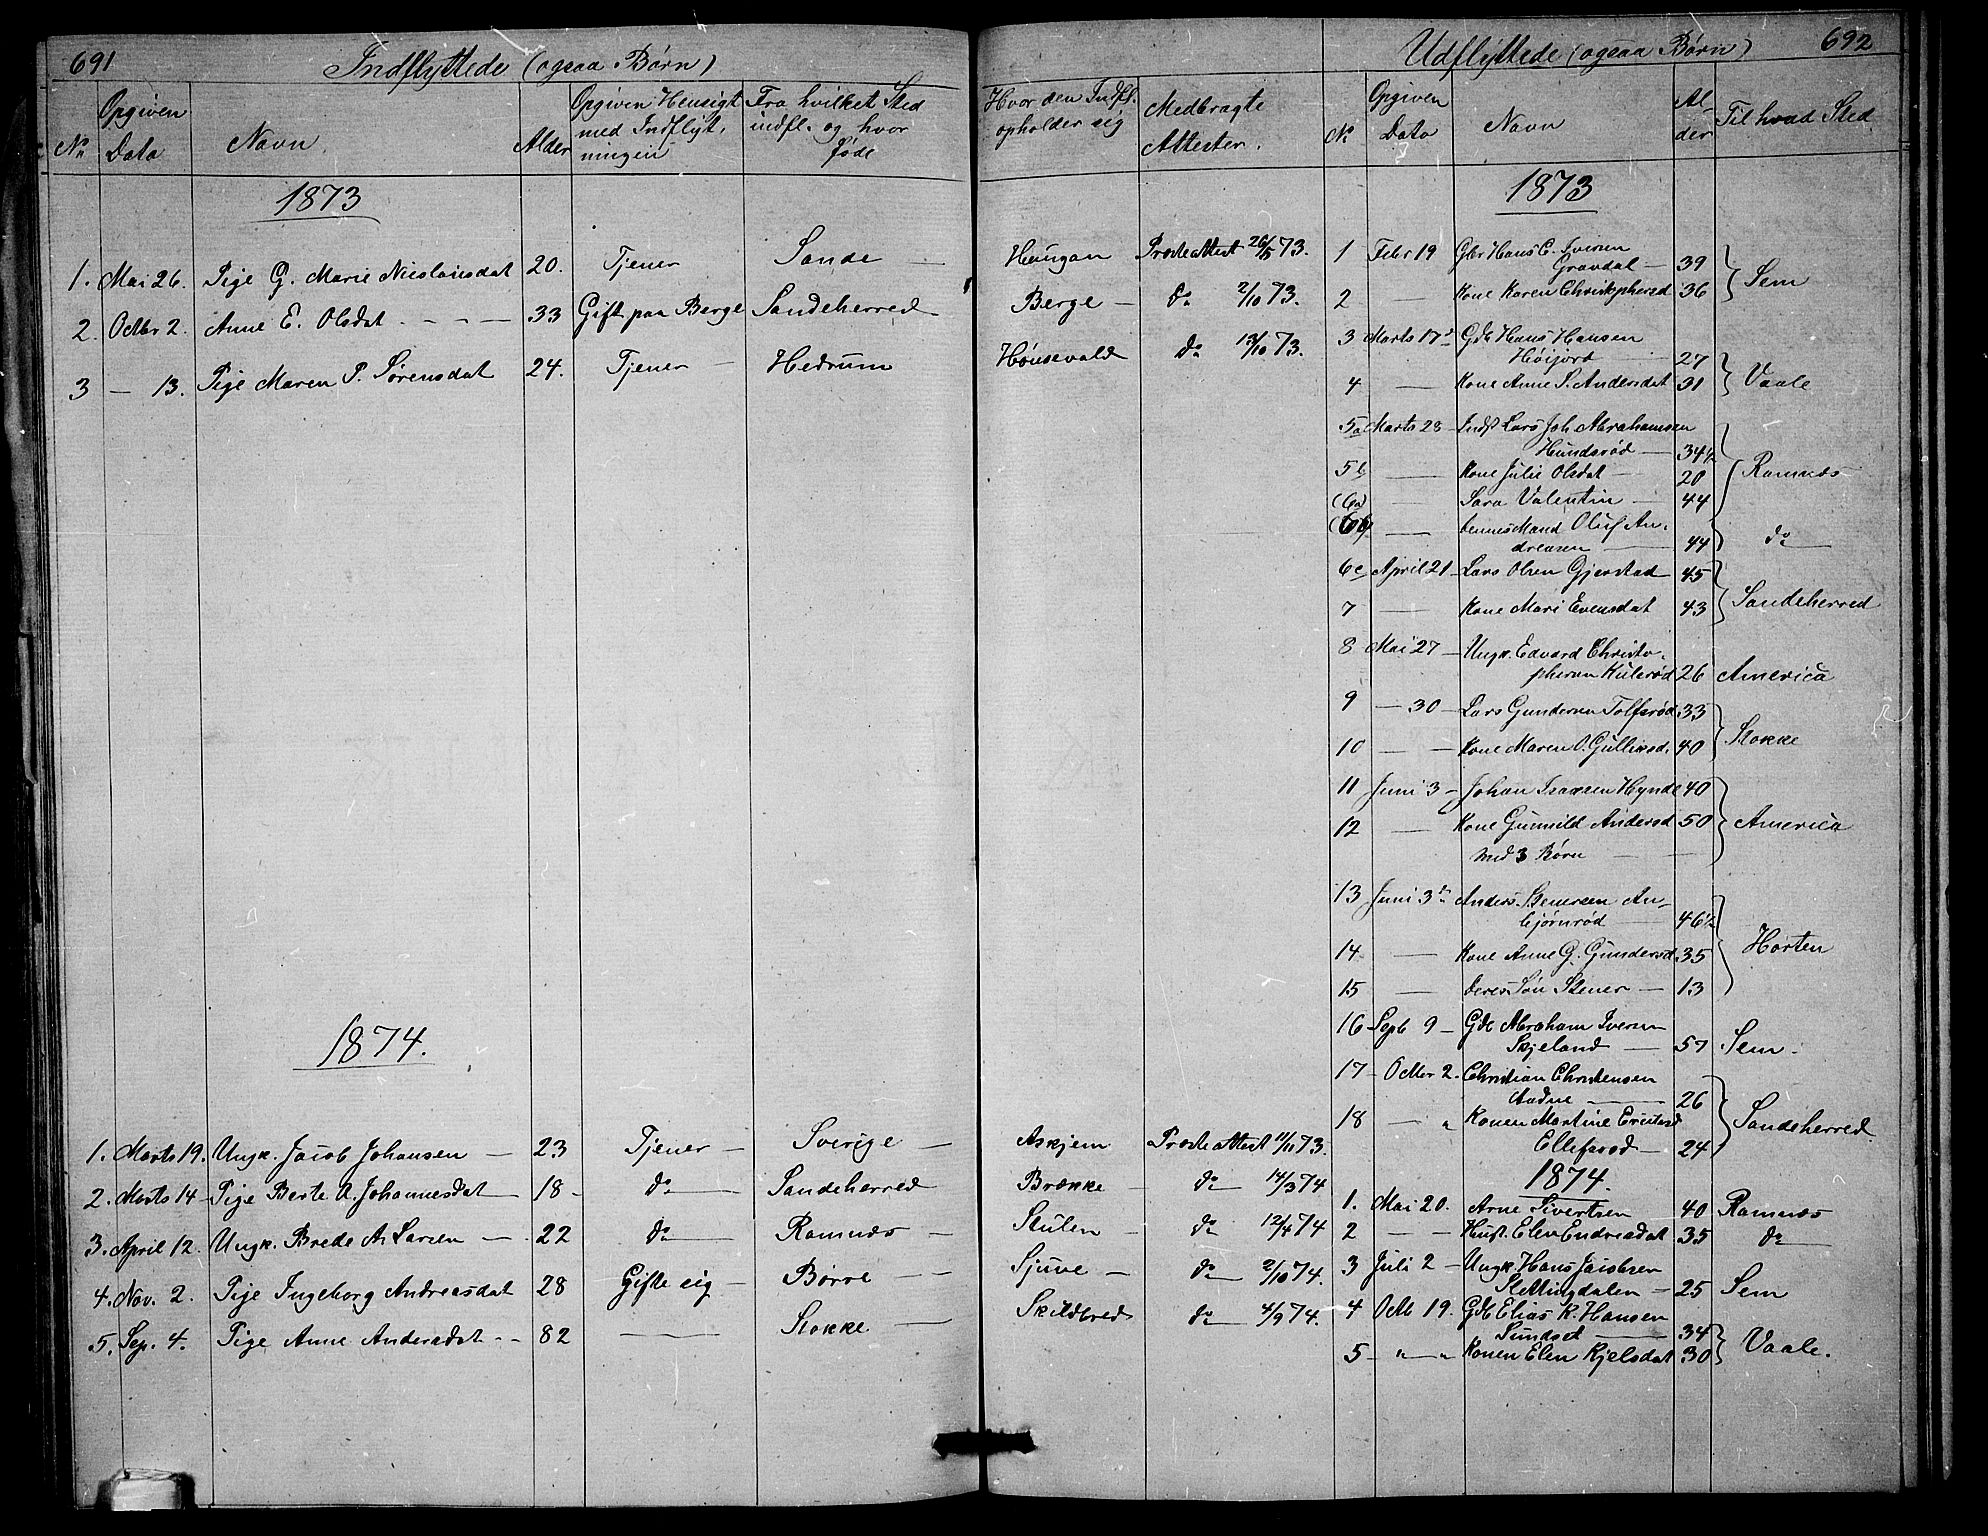 691
Indflyttede (ogsaa Børn)
No
Opgiven Data
Navn
Alder
Opgiven Hensigt med Indflytningen
Fra hvilket Sted indfl. og hvor føde
Hvor den Indfl. opholder sig
Medbragte Attester.
1873
1. Mai 26. Pige G. Marie Nicolaisdat 20. Tjener Sande Haugan Prosteattest 26/5 73.
2. Octbr 2. Anne E. Olsdat 33 Gift paa Berge Sandeherred Berge do 2/10 73.
3 — 13. Pige Maren P. Sørensdat 24. Tjener Hedrum Hønsevald do 13/10 73.
1874.
1. Marts 19. Ungk. Jacob Johansen 23 Tjener Sverige Askjem Prosteattest 11/11 73.
2. Marts 14 Pige Berte A. Johannesdat 18 do Sandeherred Brække do 14/3 74
3. April 12. Ungk. Brede A. Larsen 22 do Ramnæs Stulen do 12/4 74
4. Nov. 2. Pige Ingeborg Andreasdat 28 Gifte sig Børre Sjuve do 2/10 74.
5. Sep. 4. Pige Anne Andersdat 82 — Stokke Skildbred do 4/9 74.
Udflyttede (ogsaa Børn)
692
No
Opgiven Data
Navn
Alder
Til hvad Sted
1873
1 Febr 19 Gbr Hans C. Iversen
Gravdal 39
2 — Kone Karen Christophersd 36 } Sem
3 Marts 17 Gdb Hans Hansen
Høijord 27
4 — Kone Anne S. Andersdat 31 } Vaale
5a Marts 28 Indst Lars Joh. Abrahamsen
Hundsrød 34½
5b — Kone Julie Olsdat 20 } Ramnæs
(6a) — Sara Valentin 44
(6b) — hennes Mand Oluf An-
dreasen 44 } do
6c April 21 Lars Olsen Gjerstad 45
7 — Kone Mari Evensdat 43 } Sandeherred
8 Mai 27 Ungk. Edvard Christo-
phersen Kulerød 26 America
9 — 30 Lars Gundersen Tolfsrød 33
10 — Kone Maren O. Gulliksd. 40 } Stokke
11 Juni 3 Johan Isaksen Hynde 40
12 — Kone Gunnild Andersd 50 } America
med 3 Børn
13 Juni 3 Anders Stenersen An-
bjørnrød 46½
14 — Kone Anne G. Gundersd 35 } Horten
15 — deres Søn Stener 13
16 Sept 9 Gdb Abraham Iversen
Skjeland 57 Sem.
17 Octbr 2. Christian Christensen
Aadne 26
18 — " Konen Martine Ericksd
Ellefsrød 24 } Sandeherred
1874.
1. Mai 20. Arne Sivertsen 40 Ramnæs
2 — Hust. Elen Endresdat 35 do
3 Juli 2 Ungk. Hans Jacobsen
Slettingdalen 25 Sem
4 Octb 19. Gdb Elias K. Hansen
Sundset 34
5 " " Konen Elen Kjelsdat 30 } Vaale.